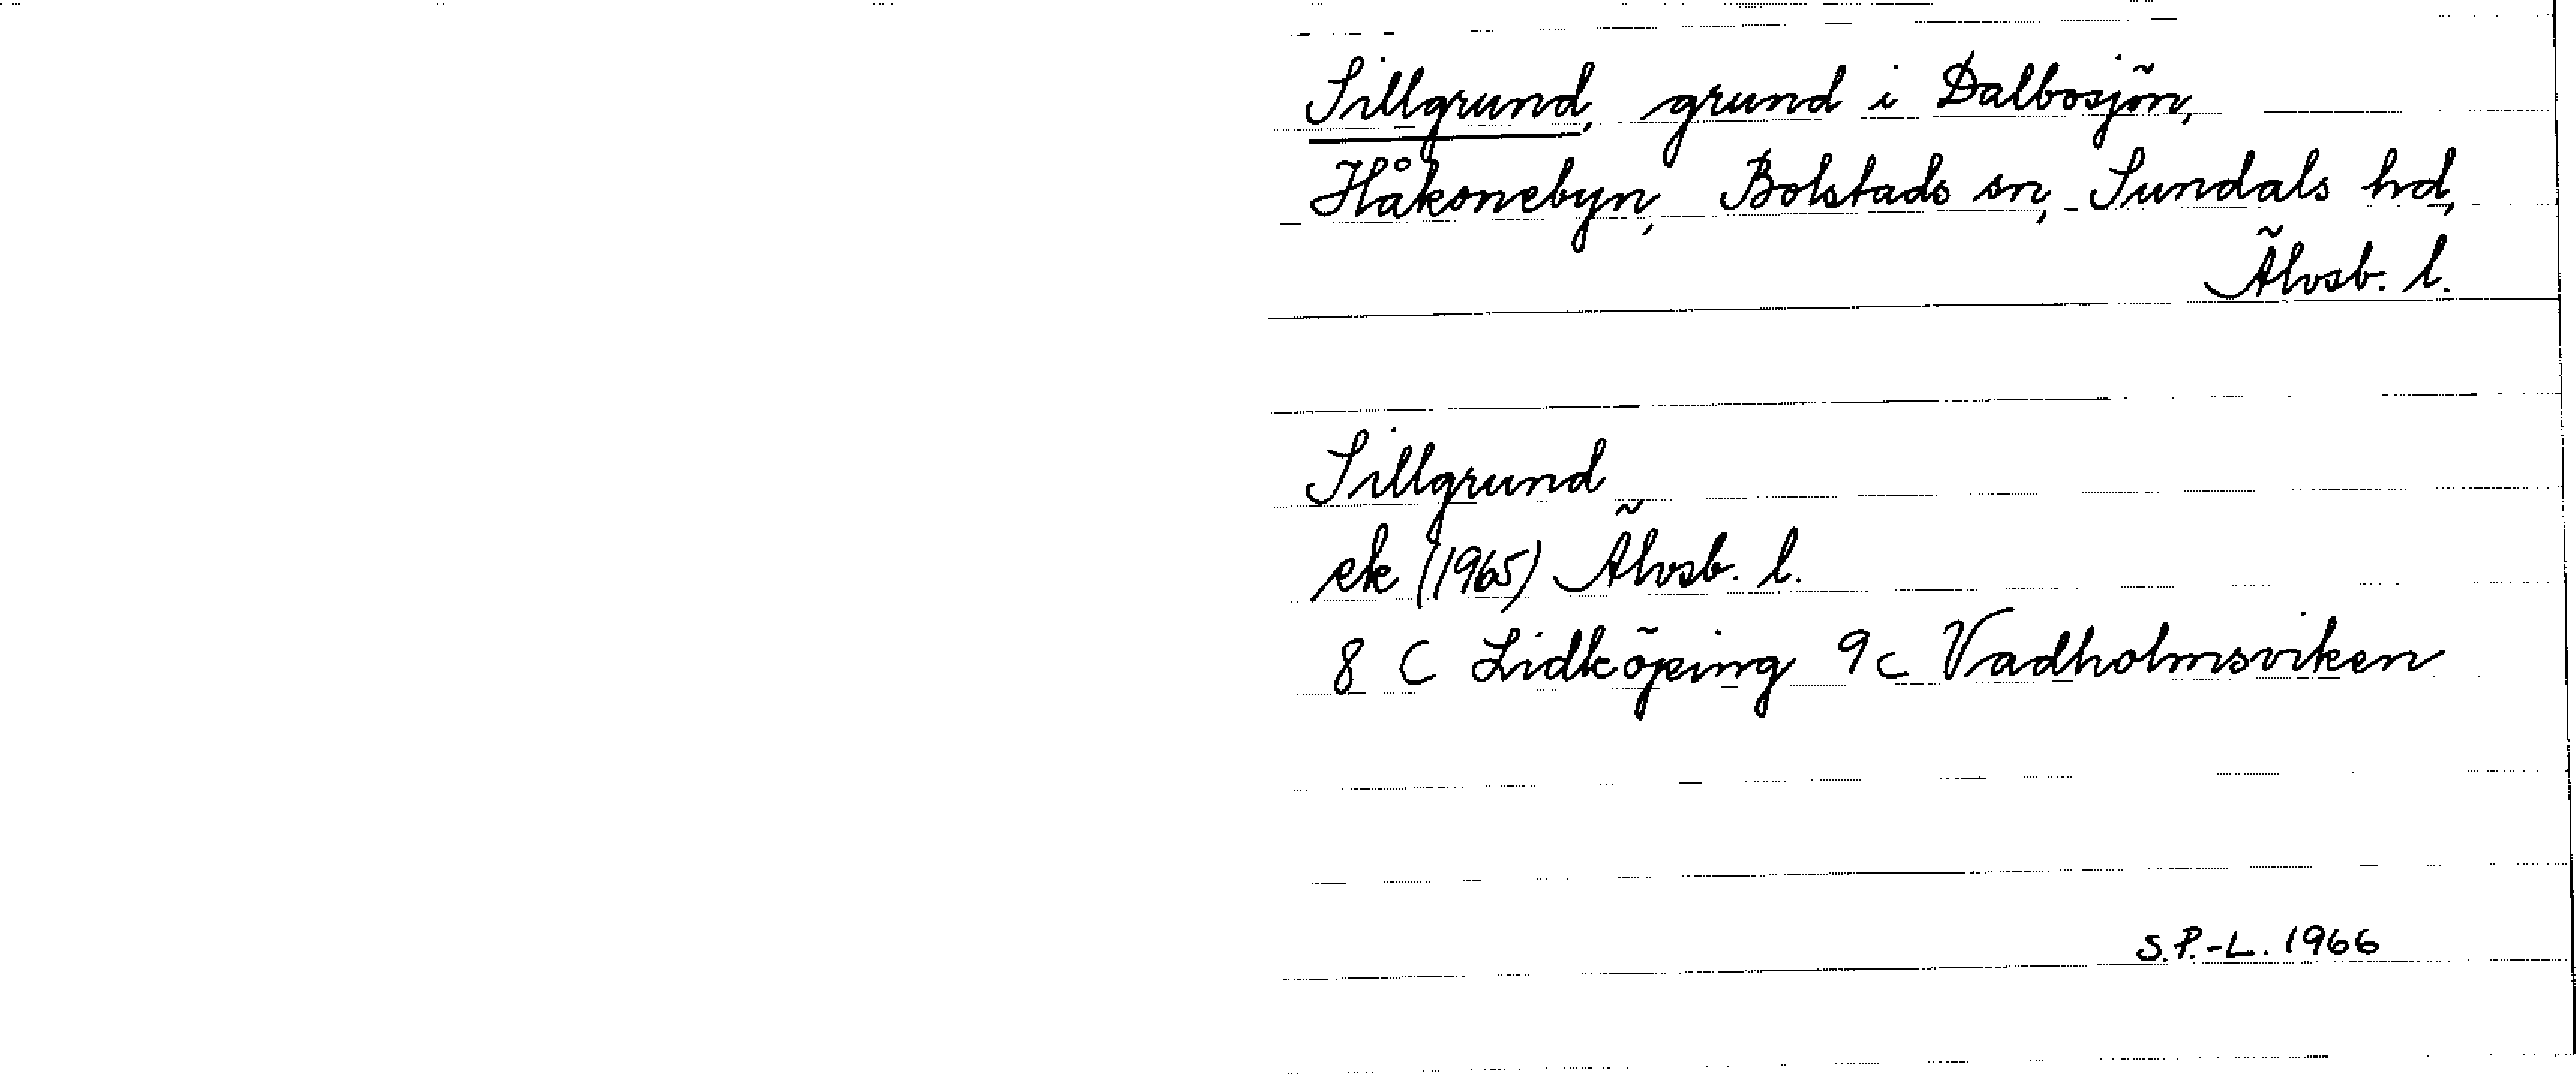 Sillgrund, grund i Dalbosjön,
Håkonebyn, Bolstads sn, Sundals hd,
Älvsb. l.
Sillgrund
ek (1965) Älvsb. l.
8 C Lidköping 9c Vadholmsviken
S.P.-L. 1966